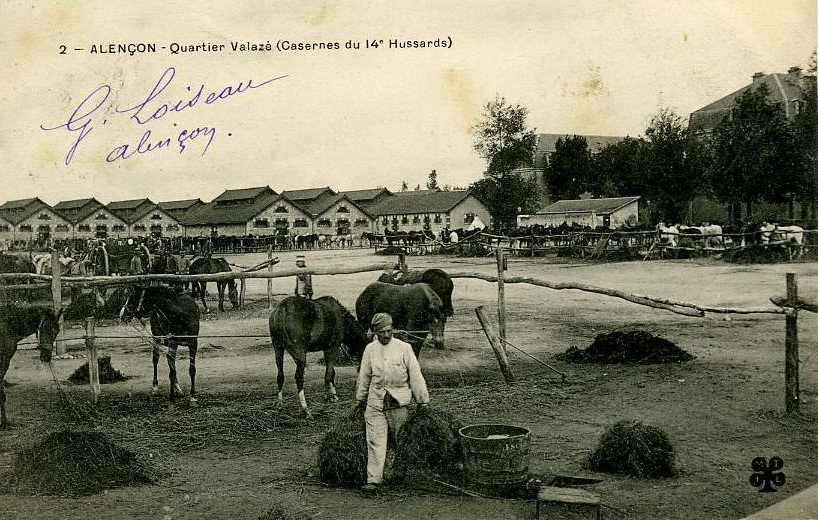 2 — ALENÇON - Quartier Valazé (Casernes du 14e Hussards)
G. Loiseau
alençon.